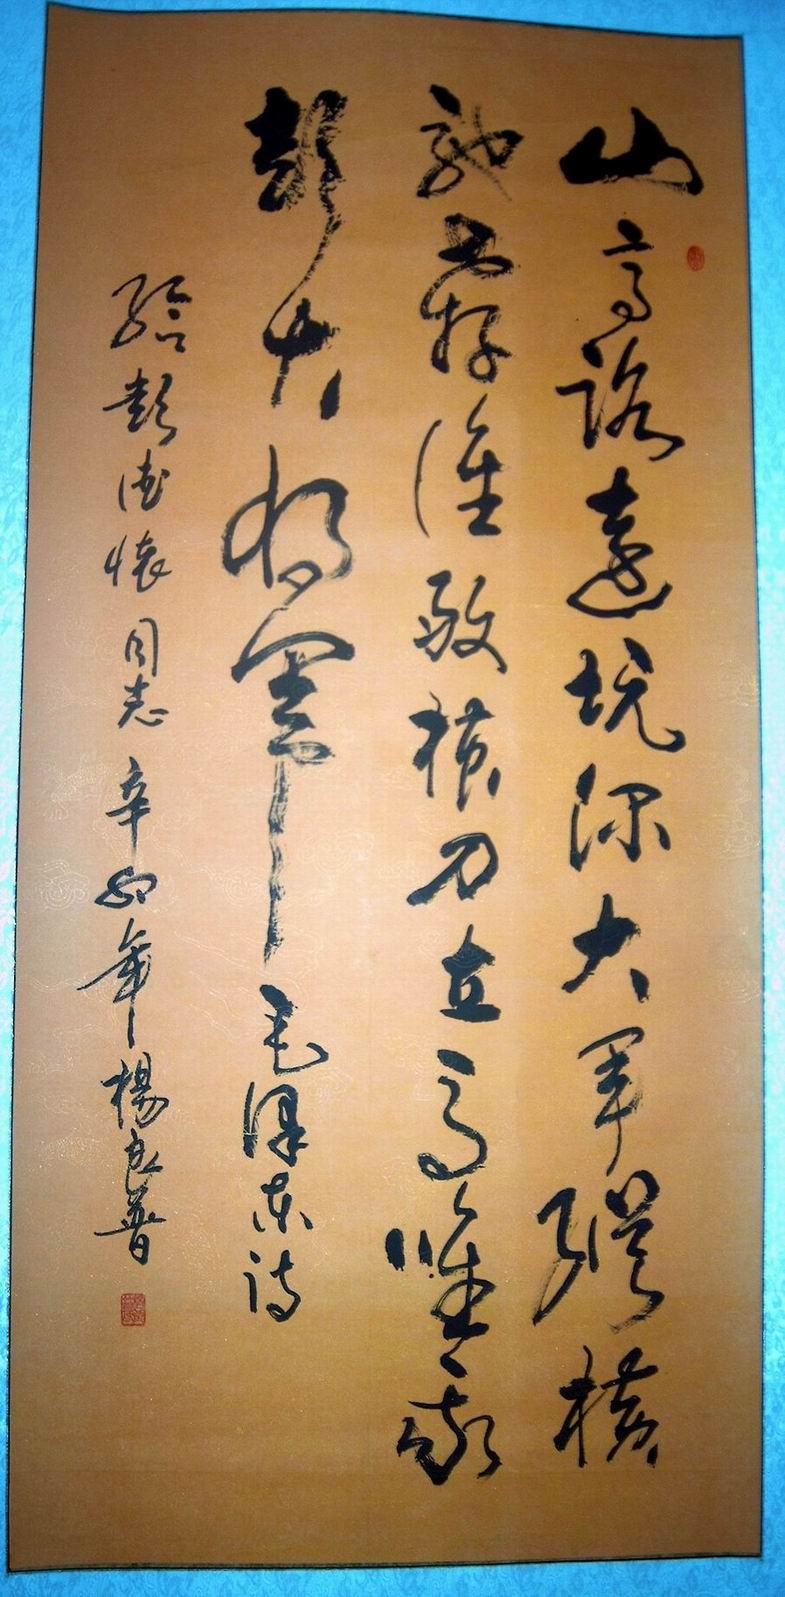 山高路遠坑深大軍縱橫
馳奔誰敢橫刀立馬唯我
彭大將軍 毛澤東詩
給彭德懷同志 辛卯年 楊良普